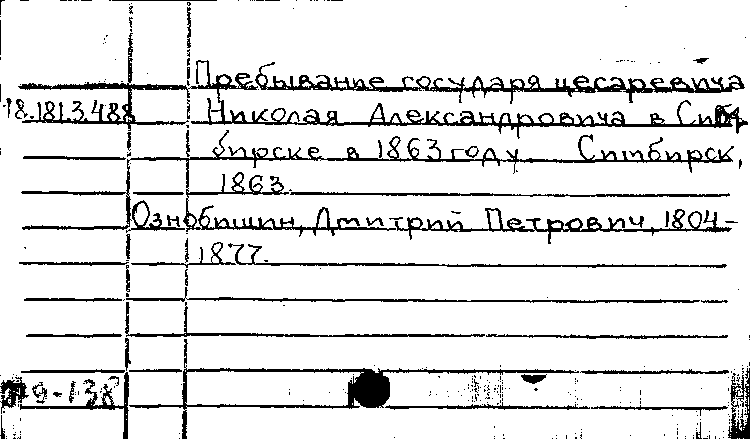 Пребывание государя цесаревича
18.181.3.488 Николая Александровича в Сим
бирске в 1863 году. Симбирск,
1863.
Ознобишин, Дмитрий Петрович, 1804-
1877.
9-138